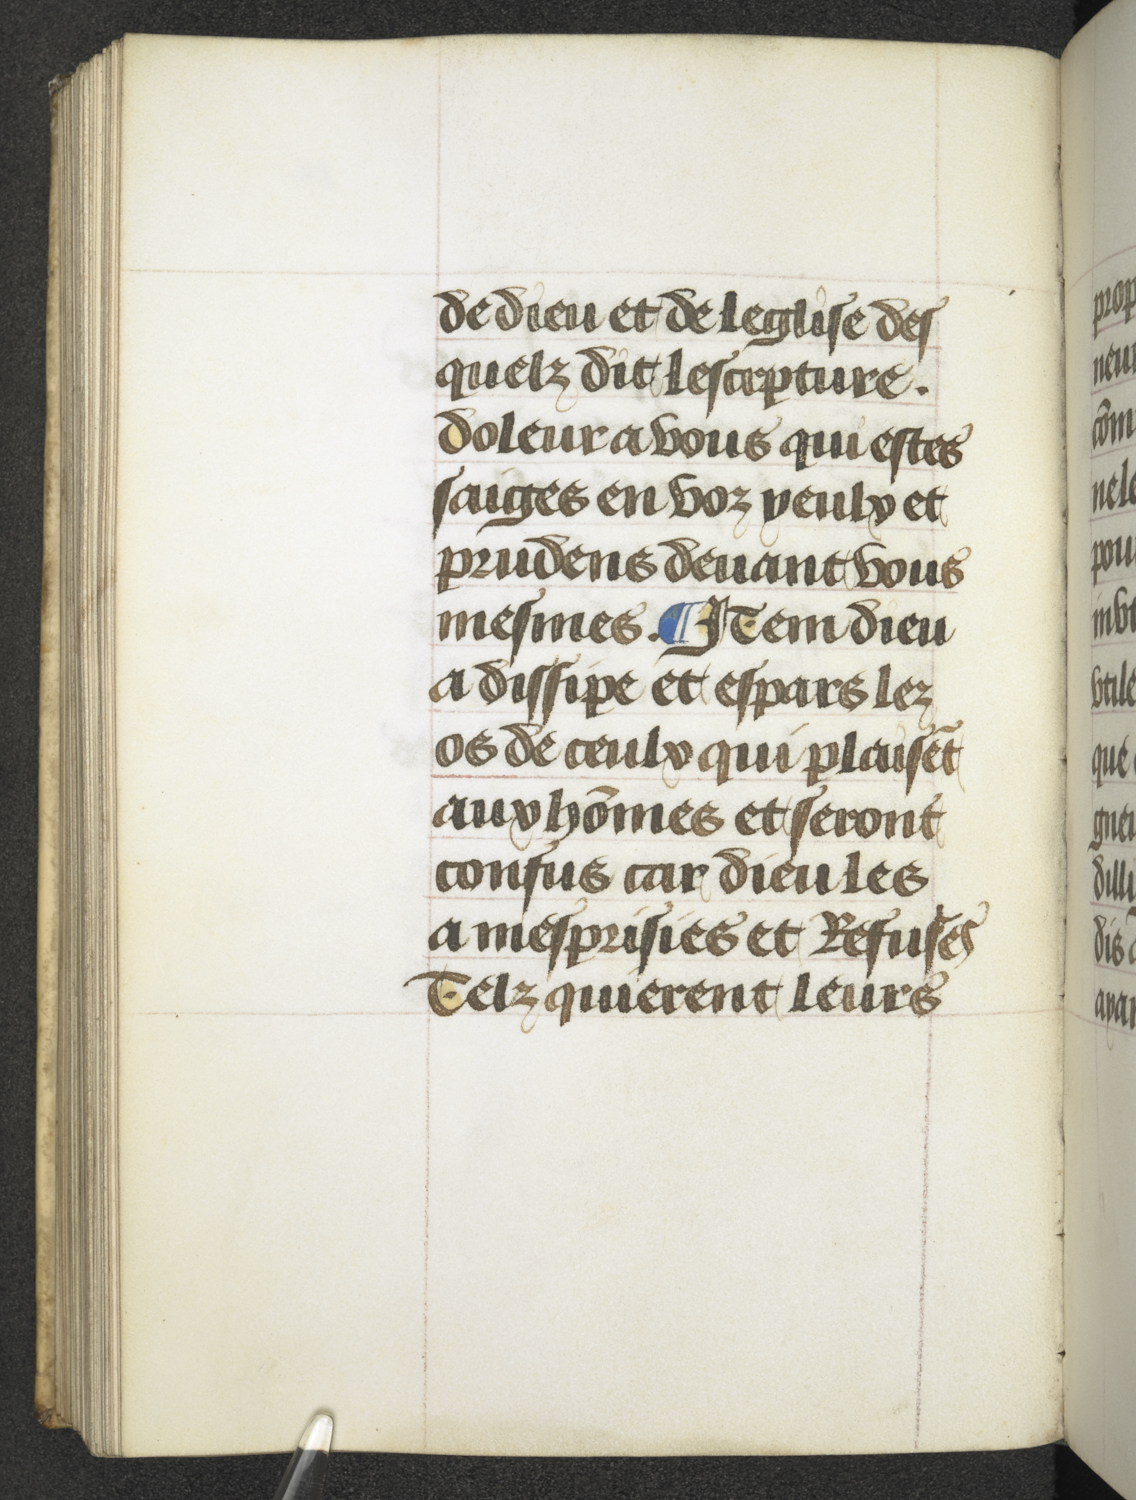 de dieu et de leglise des
quelz dit lescripture.
doleur a vous qui estes
saiges en voz yeulx et
prudens deuant vous
mesmes. ¶ Item dieu
a dissipe et espars lez
os de ceulx qui plaisẽt
aux hõmes et seront
confus car dieu les
a mesprisies et Refuses
Telz quierent leurs
prop
neur
cõm
nele
pour
invt
vtile
que
gneu
dilli
dis
ayan